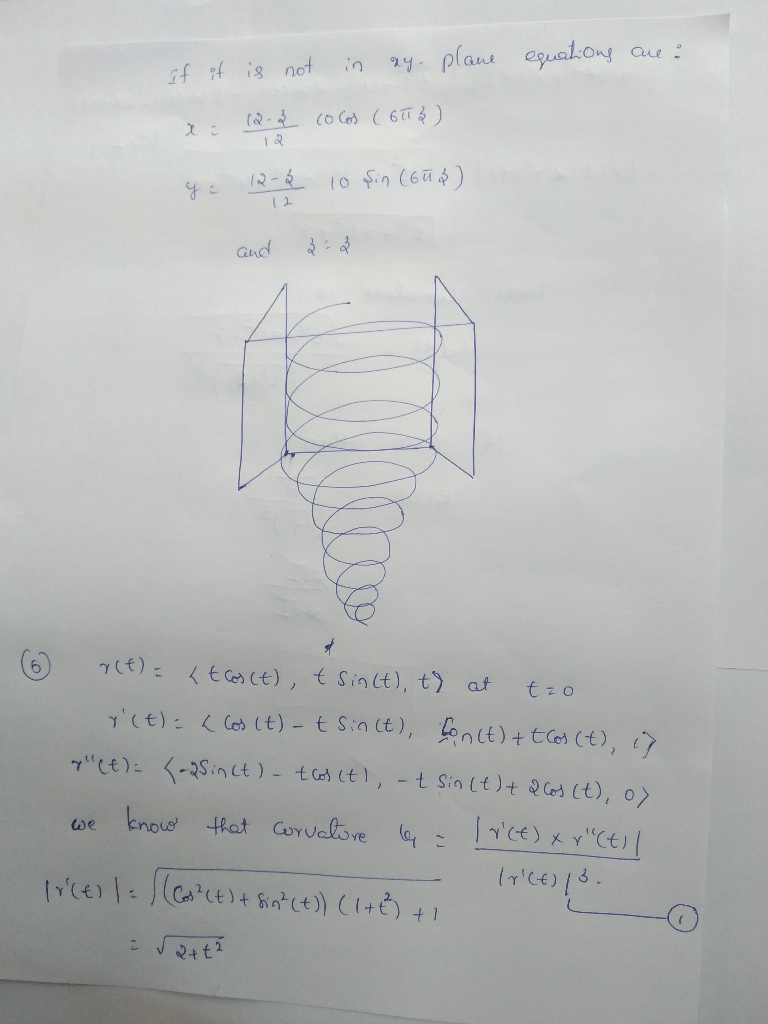 If it is not in xy- plane equations are :
x = (12-z)/12 10 Cos (6πz)
y = (12-z)/12 10 Sin (6πz)
and z = z
6 r(t) = <t Cos(t), t Sin(t), t> at t=0
r'(t) = < Cos(t) - t Sin(t), Sin(t) + t Cos(t), 1>
r''(t) = <-2Sin(t) - t cos(t), -t Sin(t) + 2 Cos(t), 0>
we know that curvature = |r'(t) x r''(t)| / |r'(t)|^3. 1
|r'(t)| = √((Cos²(t) + Sin²(t)) (1+t²) + 1
= √2+t²